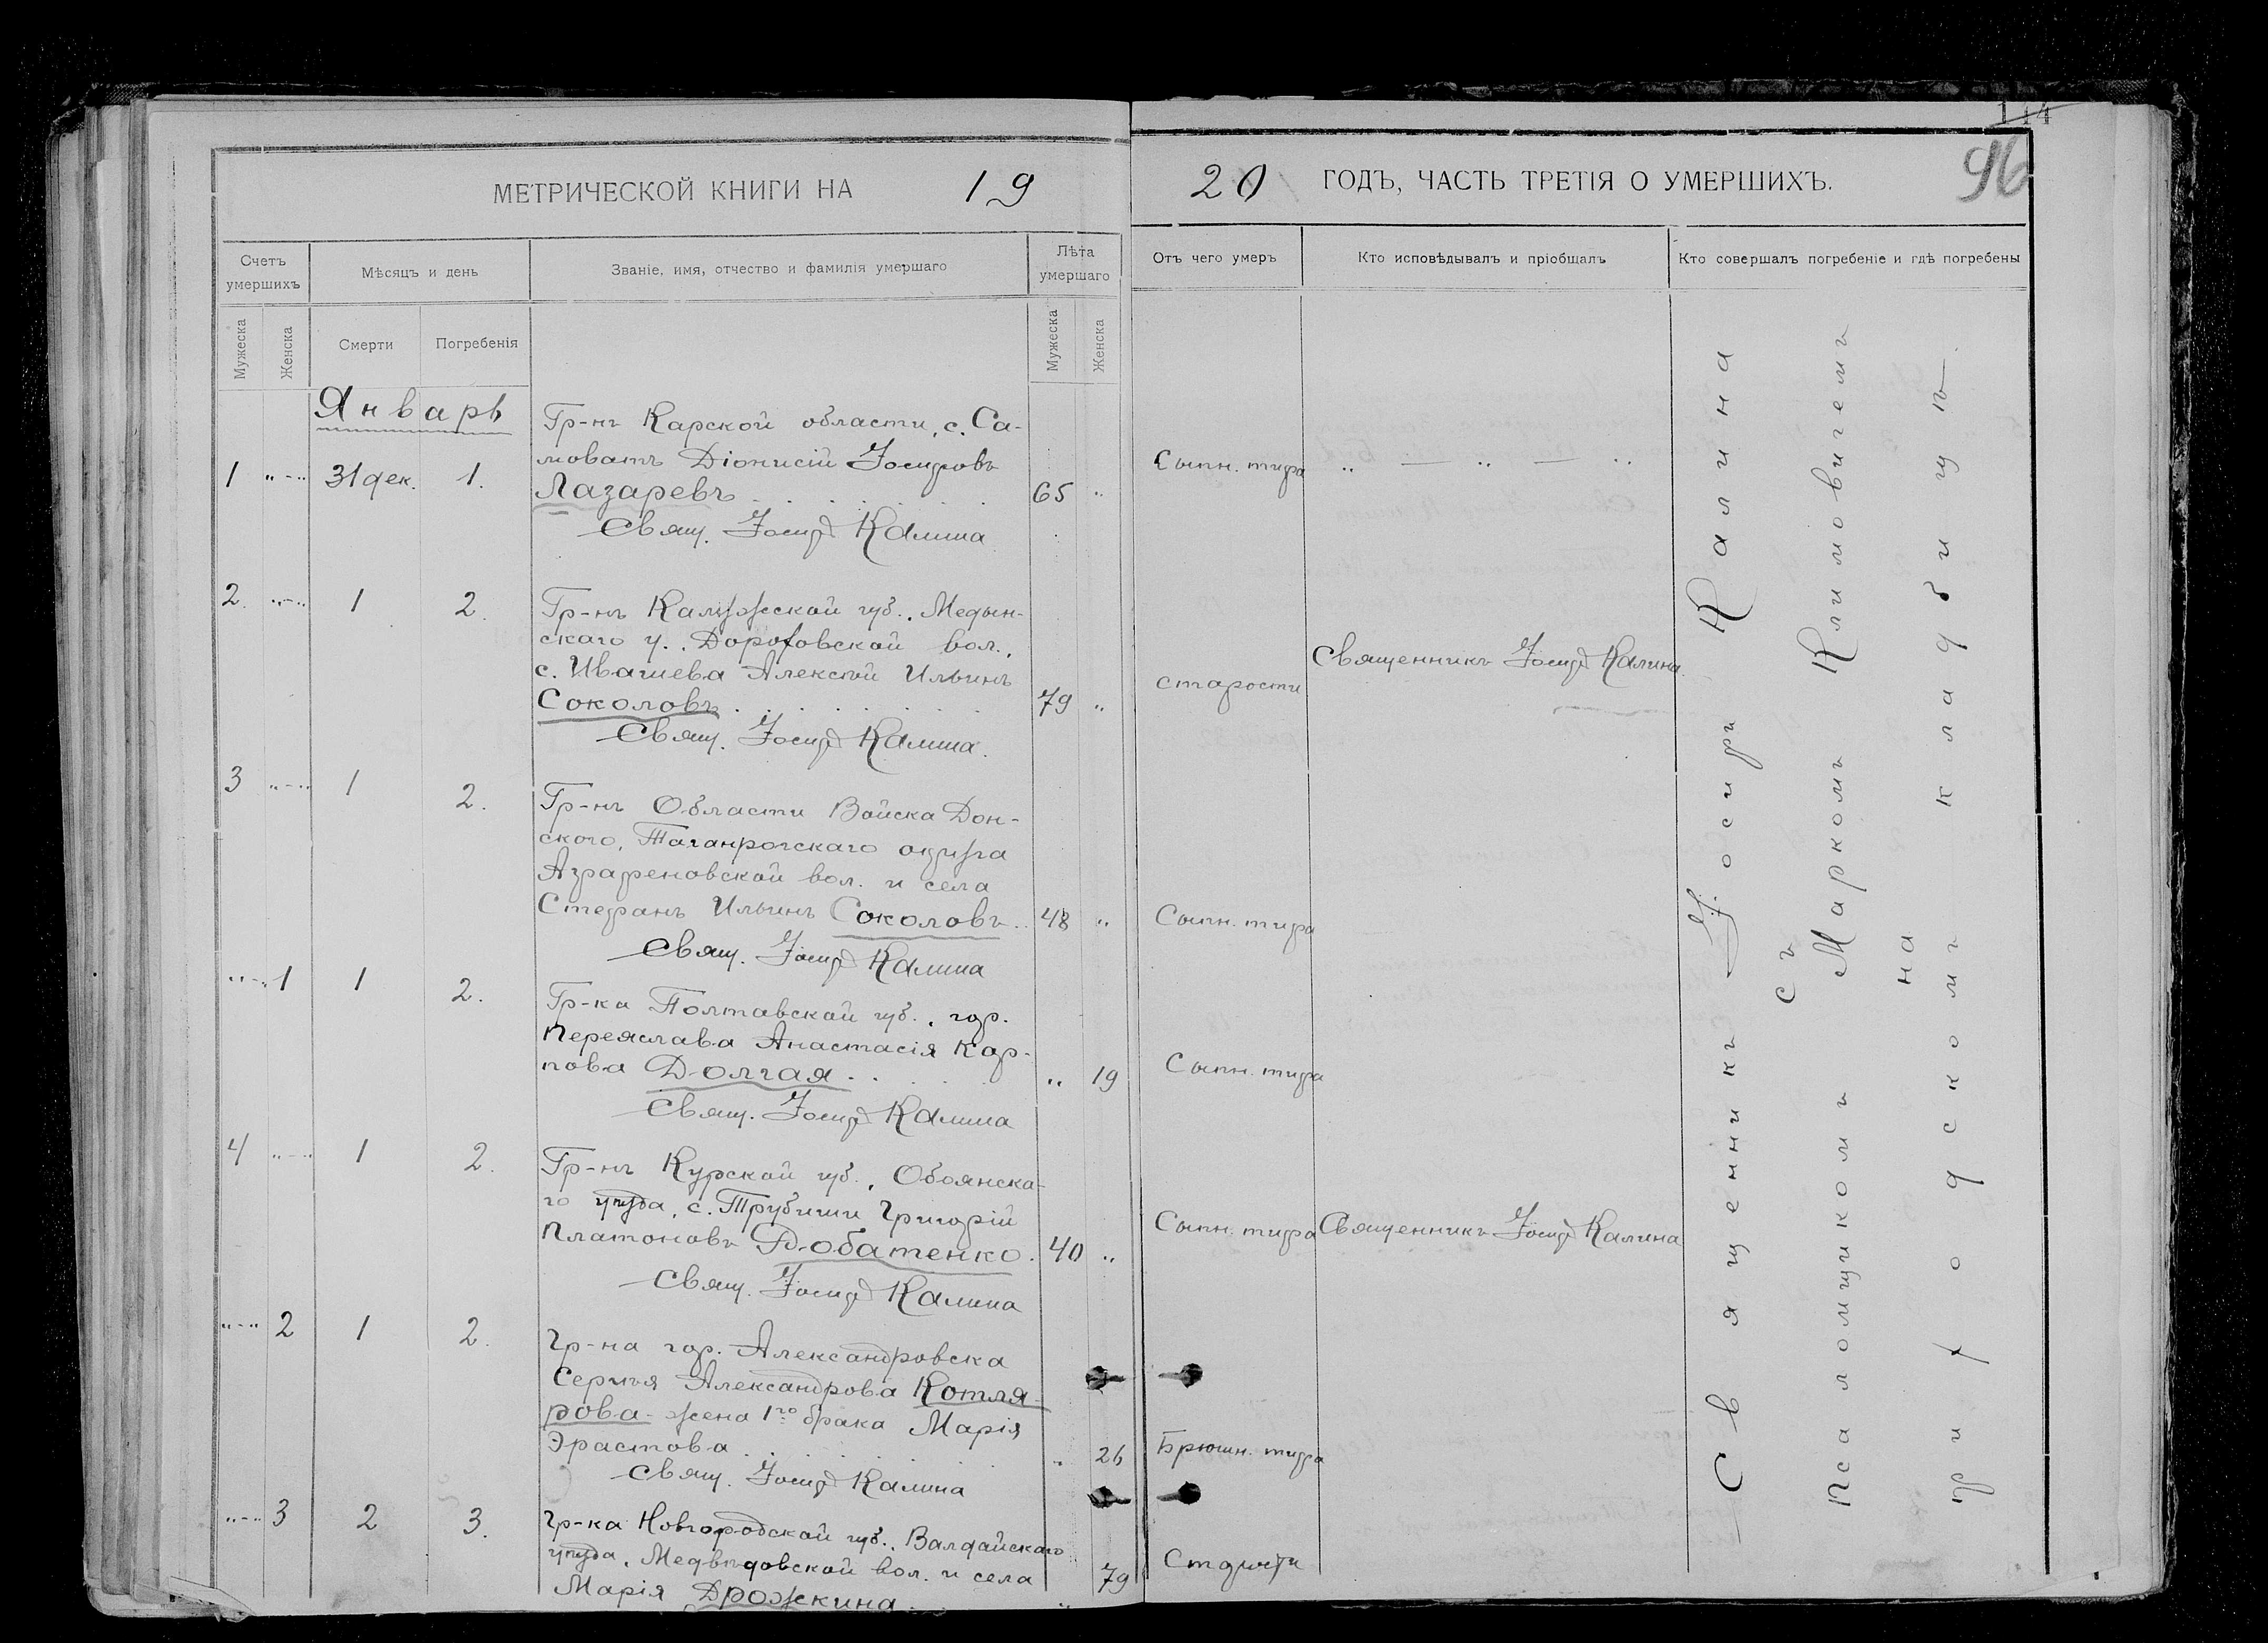 144
96
МЕТРИЧЕСКОЙ КНИГИ НА 19
20 ГОДЪ, ЧАСТЬ ТРЕТІЯ О УМЕРШИХЪ.
Счетъ умершихъ
Мѣсяцъ и день
Званіе, имя, отчество и фамилія умершаго
Лѣта умершаго
Отъ чего умеръ
Кто исповѣдывалъ и пріобщалъ
Кто совершалъ погребеніе и гдѣ погребены
Мужеска
Женска
Смерти
Погребенія
Мужеска
Женска
Январь
Гр-нъ Карской области, с. Са-
1 „ — „ 31 дек. 1. моватъ Діонисій Іосифовъ
Лазаревъ 65 „ Сыпн. тифа „ — „ — „
Свящ. Іосиф Калина
2. „ — „ 1 2. Гр-нъ Калужской губ., Медын-
скаго у., Дороховской вол.,
с. Ивашева Алексѣй Ильинъ
Соколовъ 79 „ старости Священникъ Іосиф Калина
Свящ. Іосиф Калина.
3 „ — „ 1 2. Гр-нъ Области Войска Дон-
ского, Таганрогскаго округа
Аграфеновской вол. и села
Стефанъ Ильинъ Соколовъ 48 „ Сыпн. тифа
Свящ. Іосиф Калина
„ — „ 1 1 2. Гр-ка Полтавской губ., гор.
Переяслава Анастасія Кар-
пова Долгая „ 19 Сыпн. тифа
Свящ. Іосиф Калина
4 „ — „ 1 2. Гр-нъ Курской губ., Обоянска-
го уѣзда, с. Трубичи Григорій
Платоновъ Добатенко. 40 „ Сыпн. тифа Священникъ Іосиф Калина
Свящ. Іосиф Калина
„ — „ 2 1 2. Гр-на гор. Александровска
Сергѣя Александрова Котля-
рова - жена 1го брака Марія
Эрастова „ 26 Брюшн. тифа
Свящ. Іосиф Калина
„ — „ 3 2 3. Гр-ка Новгородской губ., Валдайскаго
уѣзда, Медвѣдовской вол. и села
Марія Дрожкина. „ 79 Старости
Священникъ Іосиф Калина
съ
Псаломщикомъ Маркомъ Климовичемъ
на
городскомъ кладбищѣ